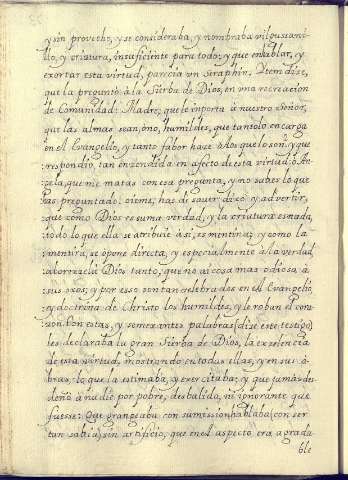 y sin provecho, y se consideraba, y nombraba vil gusani-
llo, y criatura, insuficiente para todo: y que en hablar, y
exortar esta virtud, parecia vn Seraphin. Item dise,
que la preguntò à la Sierba de Dios, en vna recreacion
de Comunidad: Madre, que le inporta à nuestro Señor,
que las almas sean, ò no, humildes, que tanto lo encarga
en el Evangelio, y tanto fabor hace à los que lo son? y que
respondiò tan encendida en afecto de esta virtud: ò An-
gela, que me matas con esa pregunta, y no sabes lo que
has preguntado: oieme, has de saver dixo y advertir,
que como Dios es suma verdad, y la criatura es nada,
todo lo que ella se atribuie à si, es mentira; y como la
mentira, se opone directa, y especialmente à la verdad
aborrecela Dios tanto, que no ai cosa mas odiosa à
sus oxos; y por eso son tan celebrados en el Evangelio,
y doctrina de Christo los humildes, y le roban el cora-
zon. Con estas, y semexantes palabras (dise este testigo)
les declaraba la gran Sierba de Dios, la excelencia
de esta virtud, mostrando en todas ellas, y en sus o-
bras, lo que la estimaba, y exercitaba; y que jamàs des-
deñò à nadie por pobre, desbalido, ni ignorante que
fuesse: Que grangeaba con sumission hablaba (con ser
tan sabia) sin artificio, que en el aspecto era agrada
ble